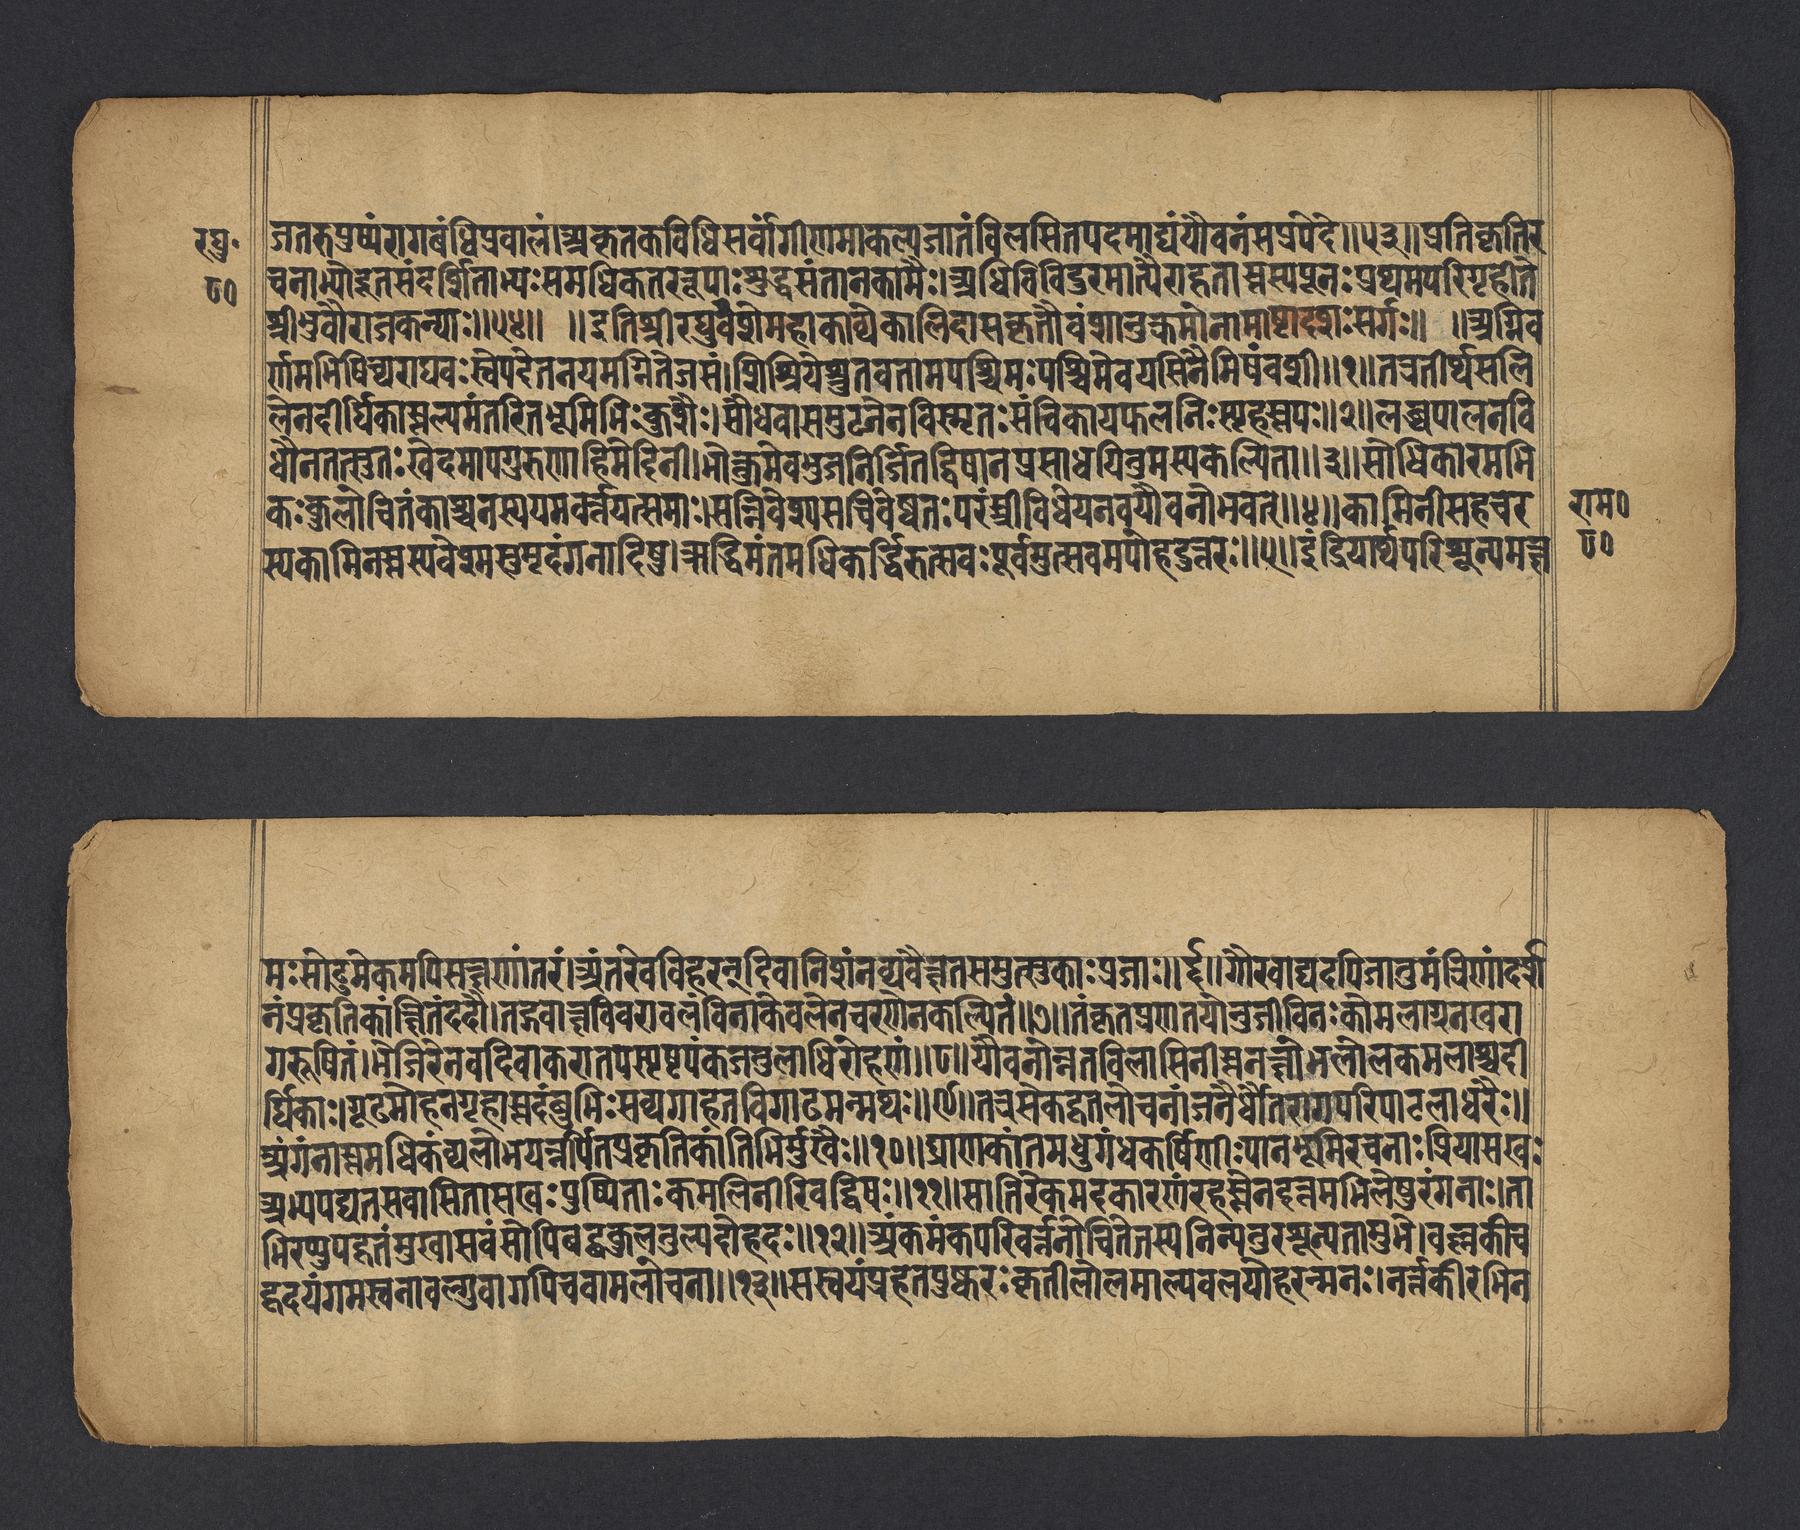 रघु॰
८०
जतरुपुष्पंरागबंधिप्रवालं।अकृतकविधिसर्वांगीणमाकल्पजातंविलसितपदमाद्यंयौवनंसप्रपेदे॥५३॥प्रतिकृतिर
चनाभ्योदूतसंदर्शिताभ्यःसमधिकतररूपाःशुद्धसंतानकामैः।अधिविविदुरमात्यैराहृतास्तस्ययूनःप्रथमपरिगृहीते
श्रीभुवौराजकन्याः॥५४॥ ॥इतिश्रीरघुवंशेमहाकाव्येकालिदासकृतौवंशानुक्रमोनामाष्टादशःसर्गः॥ ॥अग्निव
र्णमभिषिच्यराघवःस्वेपदेतनयमग्नितेजसं।शिश्रियेश्रुतवतामपश्चिमःपश्चिमेवयसिनैमिषंवशी॥१॥तत्रतीर्थसलि
लेनदीर्घिकास्तल्पमंतरितभूमिभिःकुशैः।सौधवासमुटजेनविस्मृतःसंचिकायफलनिःस्पृहस्तपः॥२॥लब्धपालनवि
धौनतत्सुतःखेदमापगुरुणाहिमेदिनी।भोक्तुमेवभुजनिर्जितद्विषानप्रसाधयितुमस्यकल्पिता॥३॥सोधिकारमभि
कःकुलोचितंकाश्चनस्वयमवर्त्तयत्समाः।सन्निवेश्यसचिवेष्वतःपरंस्त्रीविधेयनवयौवनोभवत्॥४॥कामिनीसहचर
स्यकामिनस्तस्यवेश्मसुमृदंगनादिषु।ऋद्धिमंतमधिकर्द्धिरुत्सवःपूर्वमुत्सवमपोहदुत्तरः॥५॥इंद्रियार्थपरिशून्यमक्ष
राम०
८०
मःसोढुमेकमपिसक्षणांतरं।अंतरेवविहरन्दिवानिशंनव्यवैक्षतसमुत्सुकाःप्रजाः॥६॥गौरवाद्यदपिजातुमंत्रिणांदर्श
नंप्रकृतिकांक्षितंददौ।तद्गवाक्षविवरावलंविनाकेवलेनचरणेनकल्पितं॥७॥तंकृतप्रणतयोनुजीविनःकोमलाग्रनखरा
गरूषितं।भेजिरेनवदिवाकरातपस्पृष्टपंकजतुलाधिरोहणं॥८॥यौवनोन्नतविलासिनीस्तनक्षोभलोलकमलाश्चदी
र्घिकाः।गूढमोहनगृहास्तदंबुभिःसव्यगाहतविगाढमन्मथः॥९॥तत्रसेकहृतलोचनांजनैर्धौतरागपरिपाटलाधरैः॥
अंगनास्तमधिकंव्यलोभयन्नर्पितप्रकृतिकांतिभिर्मुखैः॥१०॥घ्राणकांतमधुगंधकर्षिणीःपानभूमिरचनाःप्रियासखः
अभ्यपद्यतसवासितासखःपुष्पिताःकमलिनीरिवद्विपः॥११॥सातिरेकमदकारणंरहस्तेनदत्तमभिलेषुरंगनाः।ता
भिरप्युपहृतंमुखासवंसोपिबद्बकुलतुल्यदोहदः॥१२॥अंकमंकपरिवर्त्तनोचितेतस्यनिन्यतुरशून्यतामुभे।वल्लकीच
हृदयंगमस्वनावल्गुवागपिचवामलोचना॥१३॥सस्वयंप्रहतपुष्करःकृतीलोलमाल्यवलयोहरन्मनः।नर्त्तकीरभिन